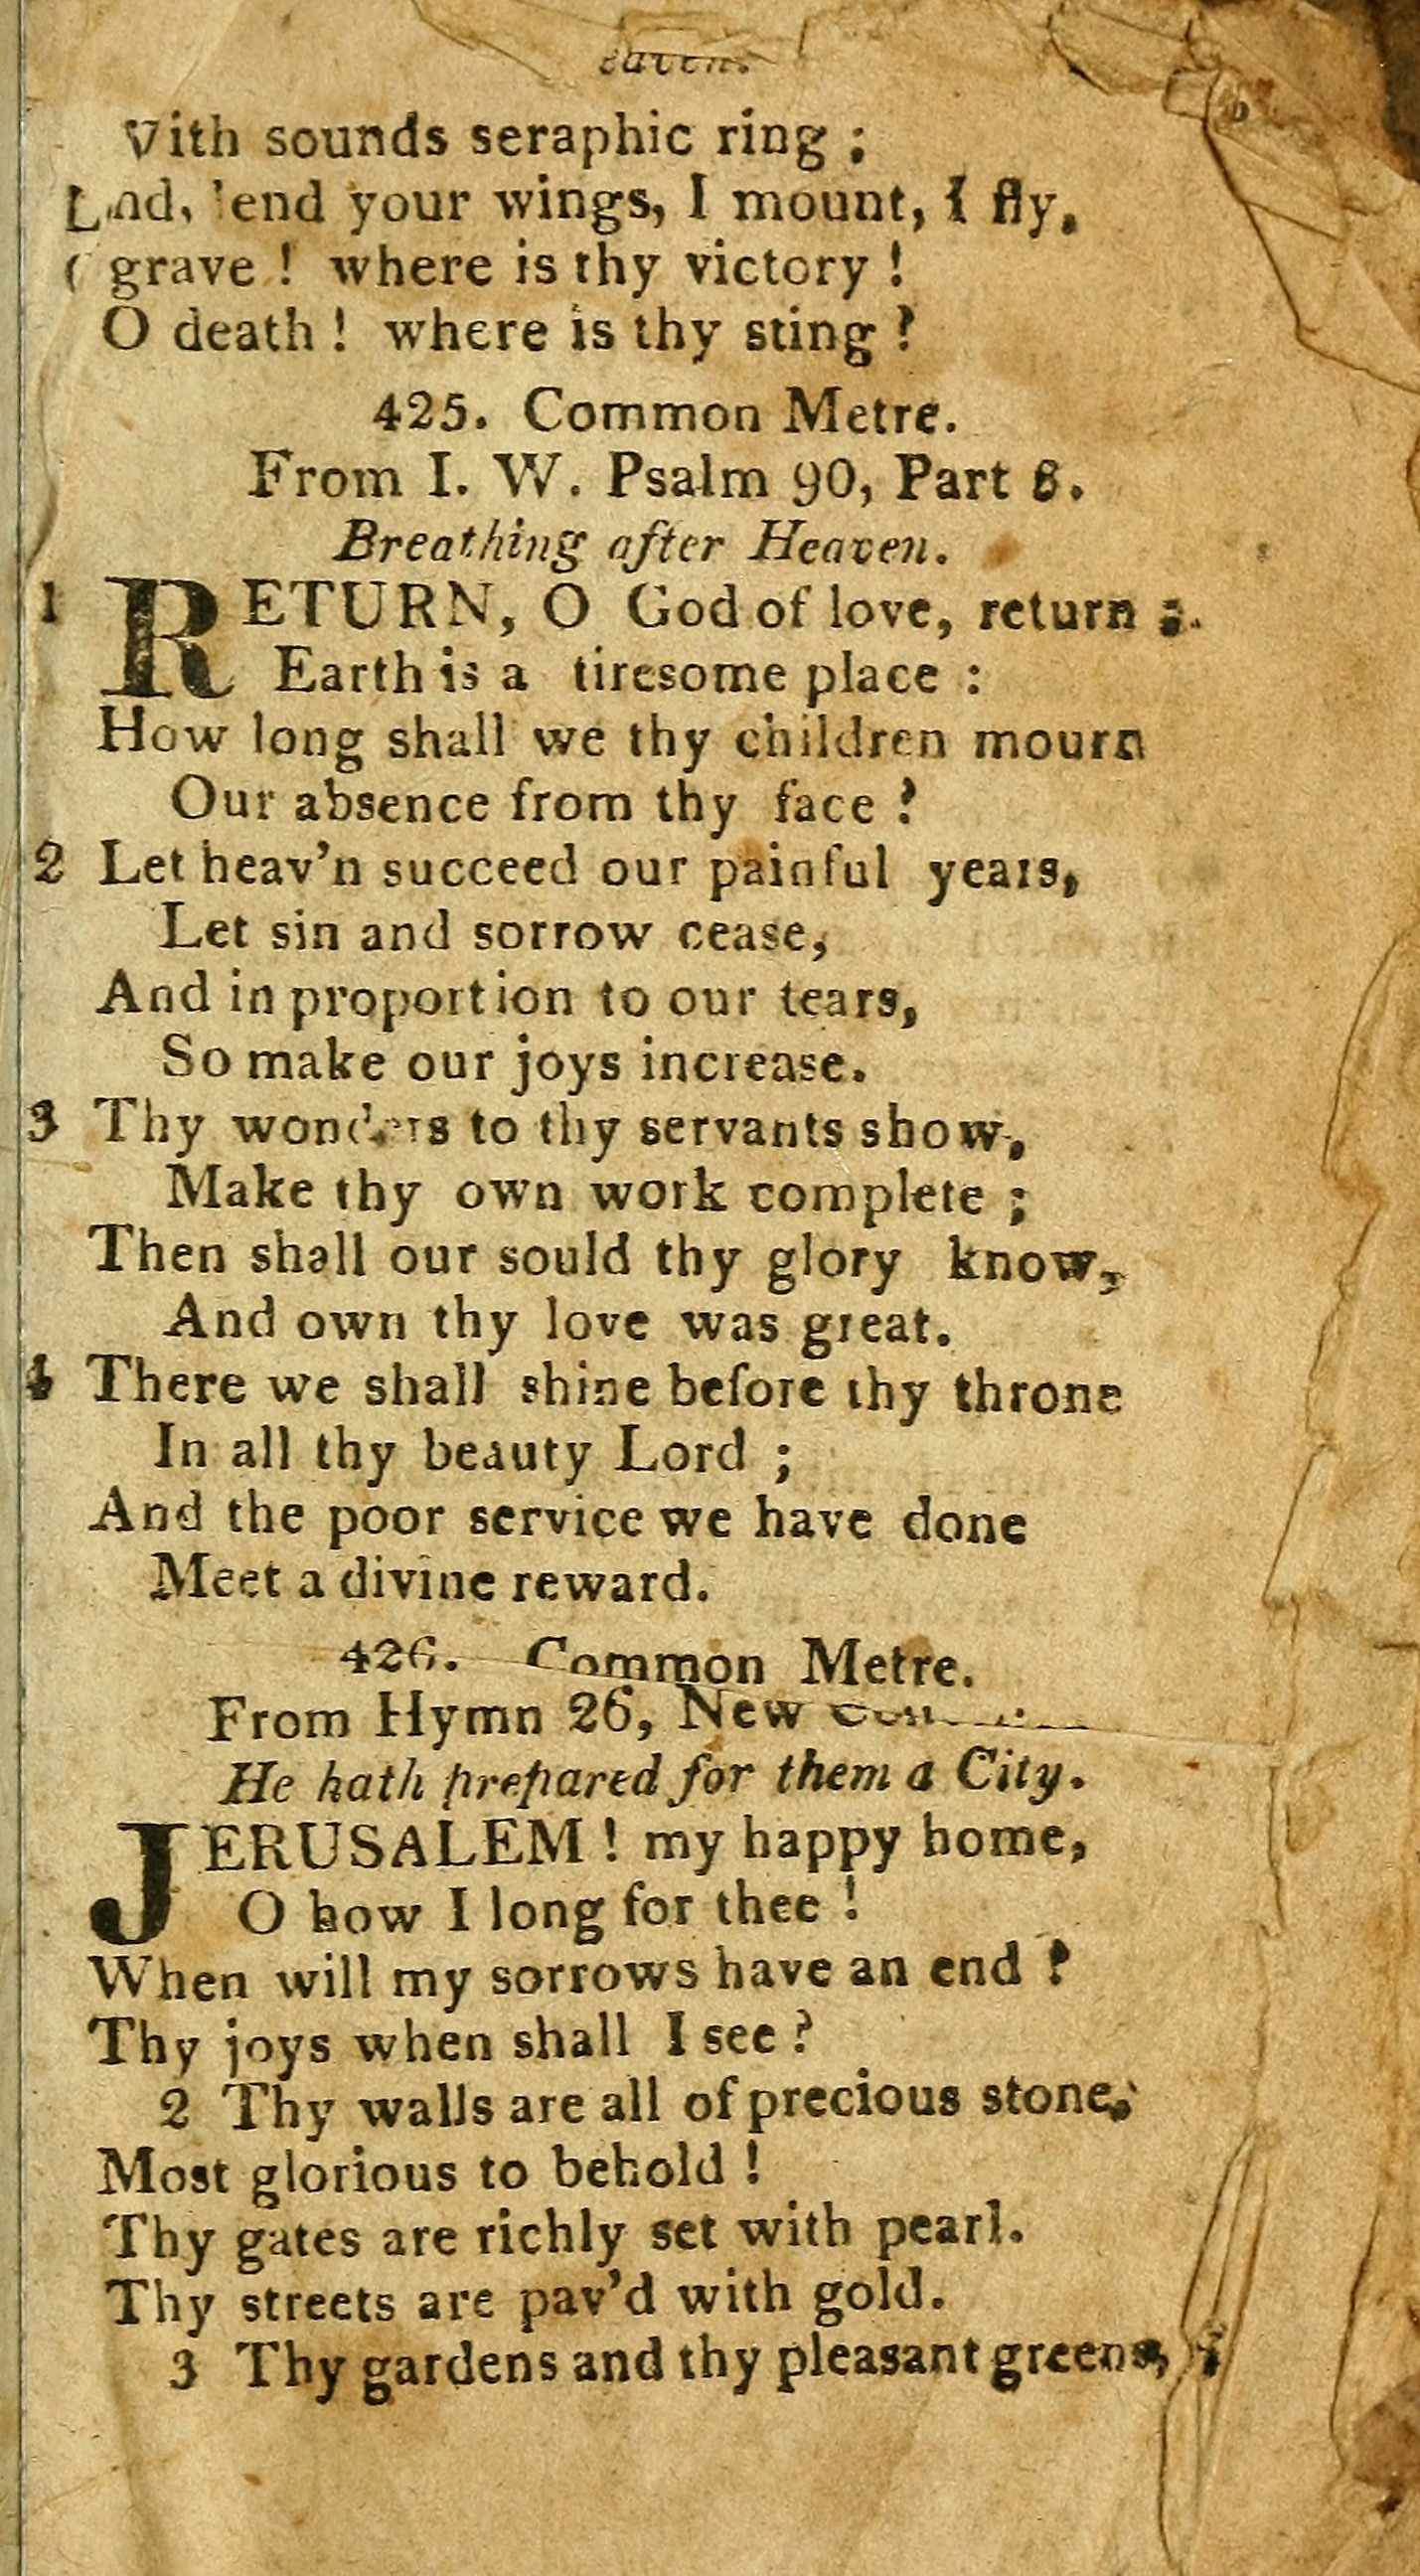 With sounds seraphic ring ;
Lend, lend your wings, I mount, I fly,
grave ! where is thy victory !
O death ! where is thy sting ?
425. Common Metre.
From I. W. Psalm 90, Part
Breathing after Heaven.
1 RETURN, O God of love, return ;
Earth is a tiresome place :
How long shall we thy children mourn
Our absence from thy face ?
2 Let heav'n succeed our painful years,
Let sin and sorrow cease,
And in proportion to our tears,
So make our joys increase.
3 Thy wonders to thy servants show,
Make thy own work complete ;
Then shall our sould thy glory know,
And own thy love was great.
4 There we shall shine before thy throne
In all thy beauty Lord ;
And the poor service we have done
Meet a divine reward.
426. Common Metre.
From Hymn 26, New
He hath prepared for them a City.
JERUSALEM ! my happy home,
O how I long for thee !
When will my sorrows have an end ?
Thy joys when shall I see ?
2 Thy walls are all of precious stone,
Most glorious to behold !
Thy gates are richly set with pearl.
Thy streets are pav'd with gold.
3 Thy gardens and thy pleasant greens,